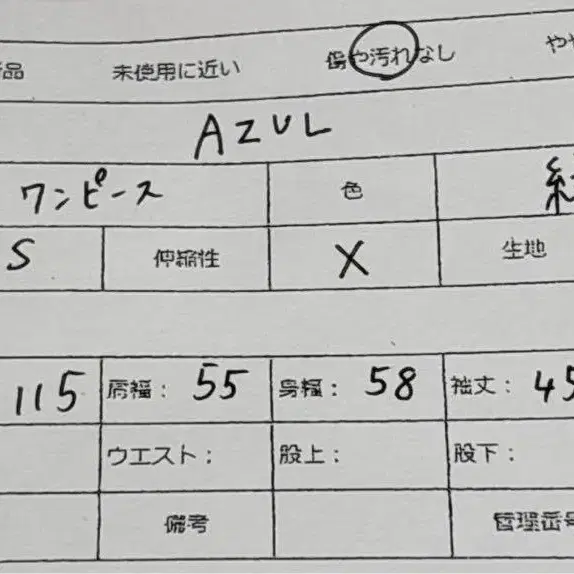 品 未使用に近い 傷や汚れなし やや
AZUL
ワンピース 色
S 伸縮性 X 生地
115 肩幅: 55 身幅: 58 袖丈: 45
ウエスト: 股上: 股下:
備考 管理番号